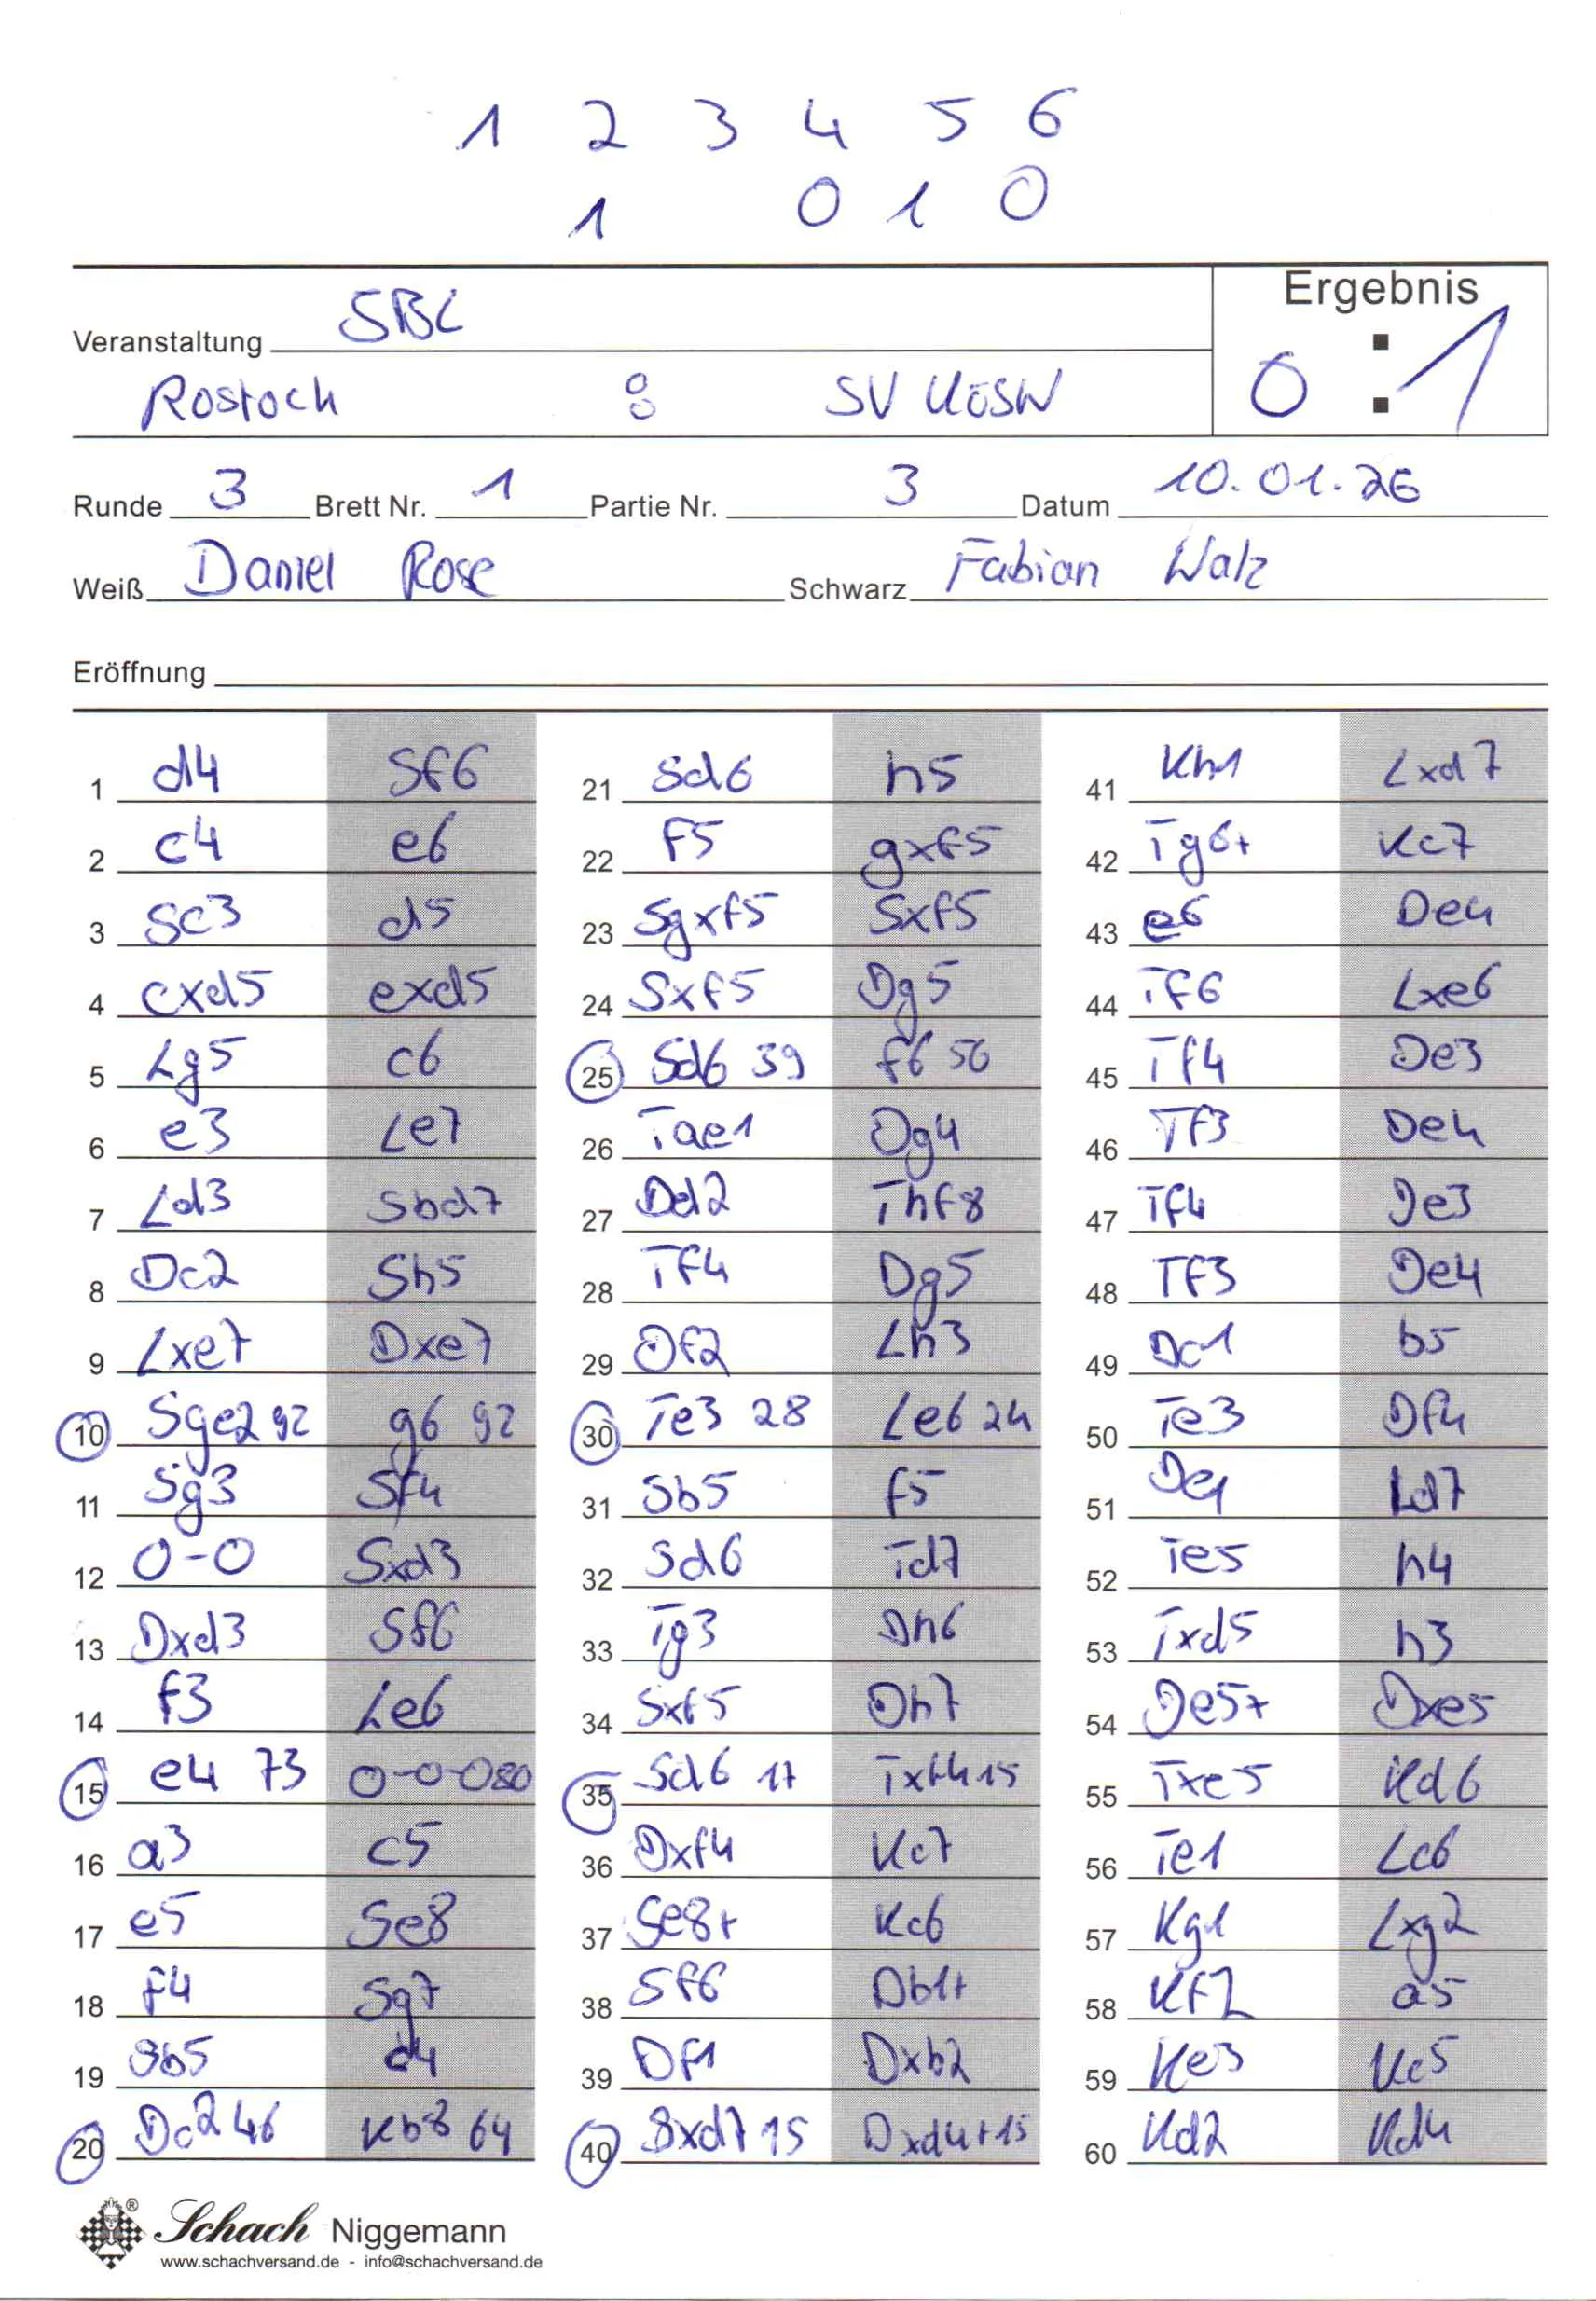 1 2 3 4 5 6
1 0 1 0
Ergebnis
Veranstaltung SBL
Rostock : SV KöSW
0 : 1
Runde 3 Brett Nr. 1 Partie Nr. 3 Datum 10.01.26
Weiß Daniel Rose Schwarz Fabian Walz
Eröffnung
1 d4 Sf6
2 c4 e6
3 Sc3 d5
4 cxd5 exd5
5 Lg5 c6
6 e3 Le7
7 Ld3 Sbd7
8 Dc2 Sh5
9 Lxe7 Dxe7
10 Sge2 92 g6 92
11 Sg3 Sf4
12 0-0 Sxd3
13 Dxd3 Sf6
14 f3 Le6
15 e4 73 0-0-0 80
16 a3 c5
17 e5 Se8
18 f4 Sg7
19 Sb5 c4
20 Dc2 46 Kb8 64
21 Sd6 h5
22 f5 gxf5
23 Sgxf5 Sxf5
24 Sxf5 Dg5
25 Sd6 39 f6 56
26 Tae1 Dg4
27 Dd2 Thf8
28 Tf4 Dg5
29 Df2 Lh3
30 Te3 28 Le6 24
31 Sb5 f5
32 Sd6 Td7
33 Tg3 Dh6
34 Sxf5 Dh7
35 Sd6 17 Txf4 15
36 Dxf4 Kc7
37 Se8+ Kc6
38 Sf6 Db1+
39 Df1 Dxb2
40 Sxd7 15 Dxd4+ 15
41 Kh1 Lxd7
42 Tg6+ Kc7
43 e6 De4
44 Tf6 Lxe6
45 Tf4 De3
46 Tf3 De4
47 Tf4 De3
48 Tf3 De4
49 Dc1 b5
50 Te3 Df4
51 De1 Ld7
52 Te5 h4
53 Txd5 h3
54 De5+ Dxe5
55 Txe5 Kd6
56 Te1 Lc6
57 Kg1 Lxg2
58 Kf2 a5
59 Ke3 Kc5
60 Kd2 Kd4
® Schach Niggemann
www.schachversand.de - info@schachversand.de